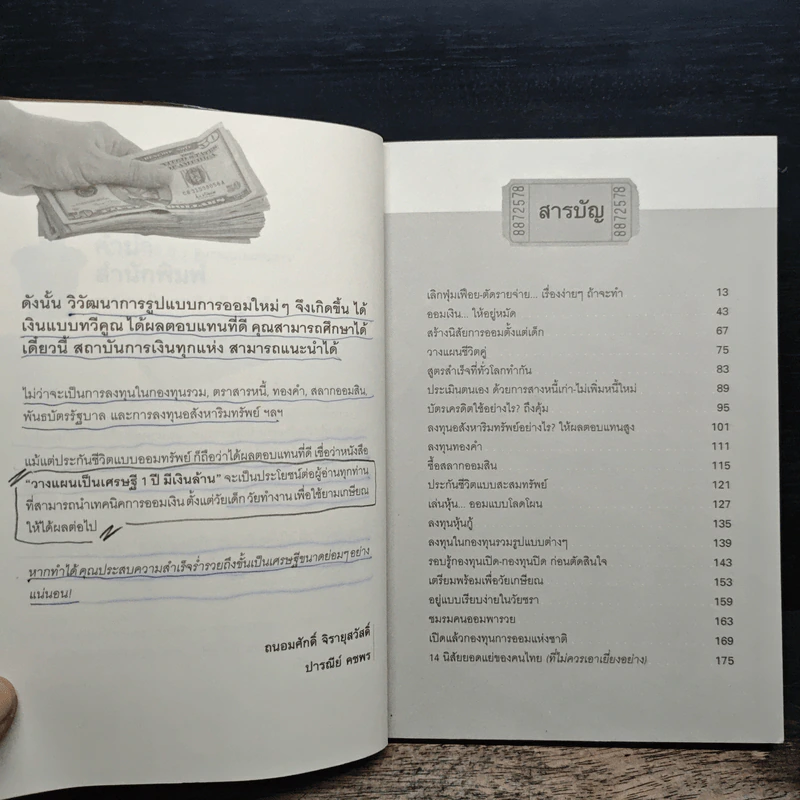 ดังนั้น วิวัฒนาการรูปแบบการออมใหม่ๆ จึงเกิดขึ้น ได้
เงินแบบทวีคูณ ได้ผลตอบแทนที่ดี คุณสามารถศึกษาได้
เดี๋ยวนี้ สถาบันการเงินทุกแห่ง สามารถแนะนำได้
ไม่ว่าจะเป็นการลงทุนในกองทุนรวม, ตราสารหนี้, ทองคำ, สลากออมสิน,
พันธบัตรรัฐบาล และการลงทุนอสังหาริมทรัพย์ ฯลฯ
แม้แต่ประกันชีวิตแบบออมทรัพย์ ก็ถือว่าได้ผลตอบแทนที่ดี เชื่อว่าหนังสือ
"วางแผนเป็นเศรษฐี 1 ปี มีเงินล้าน" จะเป็นประโยชน์ต่อผู้อ่านทุกท่าน
ที่สามารถนำเทคนิคการออมเงิน ตั้งแต่วัยเด็ก วัยทำงาน เพื่อใช้ยามเกษียณ
ให้ได้ผลต่อไป
หากทำได้ คุณประสบความสำเร็จร่ำรวยถึงขั้นเป็นเศรษฐีขนาดย่อมๆ อย่าง
แน่นอน!
ถนอมศักดิ์ จิรายุสวัสดิ์
ปารณีย์ คชพร
8872578
สารบัญ
8872578
เลิกฟุ่มเฟือย-ตัดรายจ่าย... เรื่องง่ายๆ ถ้าจะทำ 13
ออมเงิน... ให้อยู่หมัด 43
สร้างนิสัยการออมตั้งแต่เด็ก 67
วางแผนชีวิตคู่ 75
สูตรสำเร็จที่ทั่วโลกทำกัน 83
ประเมินตนเอง ด้วยการสางหนี้เก่า-ไม่เพิ่มหนี้ใหม่ 89
บัตรเครดิตใช้อย่างไร? ถึงคุ้ม 95
ลงทุนอสังหาริมทรัพย์อย่างไร? ให้ผลตอบแทนสูง 101
ลงทุนทองคำ 111
ซื้อสลากออมสิน 115
ประกันชีวิตแบบสะสมทรัพย์ 121
เล่นหุ้น... ออมแบบโลดโผน 127
ลงทุนหุ้นกู้ 135
ลงทุนในกองทุนรวมรูปแบบต่างๆ 139
รอบรู้กองทุนเปิด-กองทุนปิด ก่อนตัดสินใจ 143
เตรียมพร้อมเพื่อวัยเกษียณ 153
อยู่แบบเรียบง่ายในวัยชรา 159
ชมรมคนออมพารวย 163
เปิดแล้วกองทุนการออมแห่งชาติ 169
14 นิสัยยอดแย่ของคนไทย (ที่ไม่ควรเอาเยี่ยงอย่าง) 175